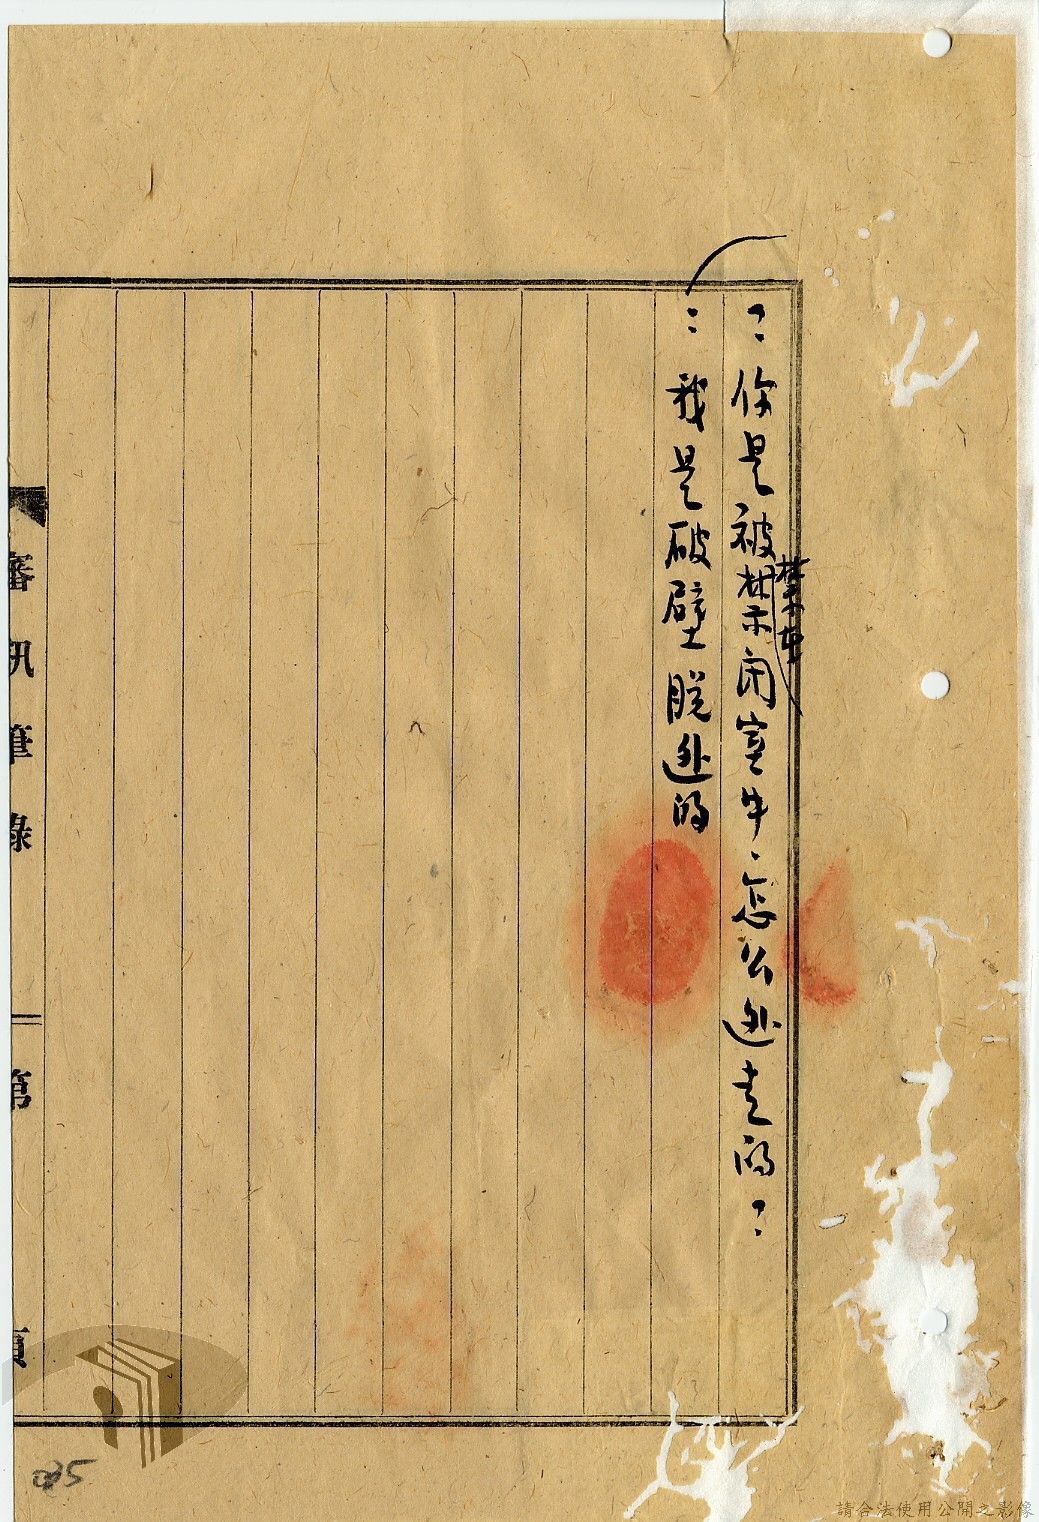 ：你是被禁闭室中、怎么逃走的：
禁在
：我是破壁脱逃的
審訊筆錄　第　頁
035
請合法使用公開之影像